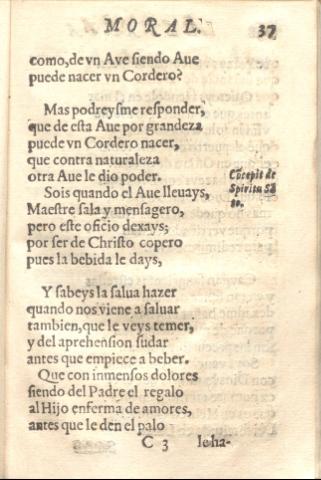 MORAL. 37
como, de vn Aue siendo Aue
puede nacer vn Cordero?
Mas podreysme responder,
que de esta Aue por grandeza
puede vn Cordero nacer,
que contra naturaleza
otra Aue le dio poder.
Cōcepit de
Spiritu Sā
Sois quando el Aue lleuays,
Maestre sala y mensagero,
pero este oficio dexays;
por ser de Christo copero
pues la bebida le days,
Y sabeys la salua hazer
quando nos viene a saluar
tambien, que le veys temer,
y del aprehension sudar
antes que empiece a beber.
Que con inmensos dolores
siendo del Padre el regalo
al Hijo enferma de amores,
antes que le den el palo
C 3 Ioha-